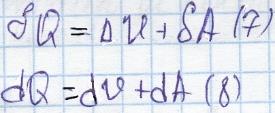 δQ = ΔU + δA (7)
dQ = dU + dA (8)